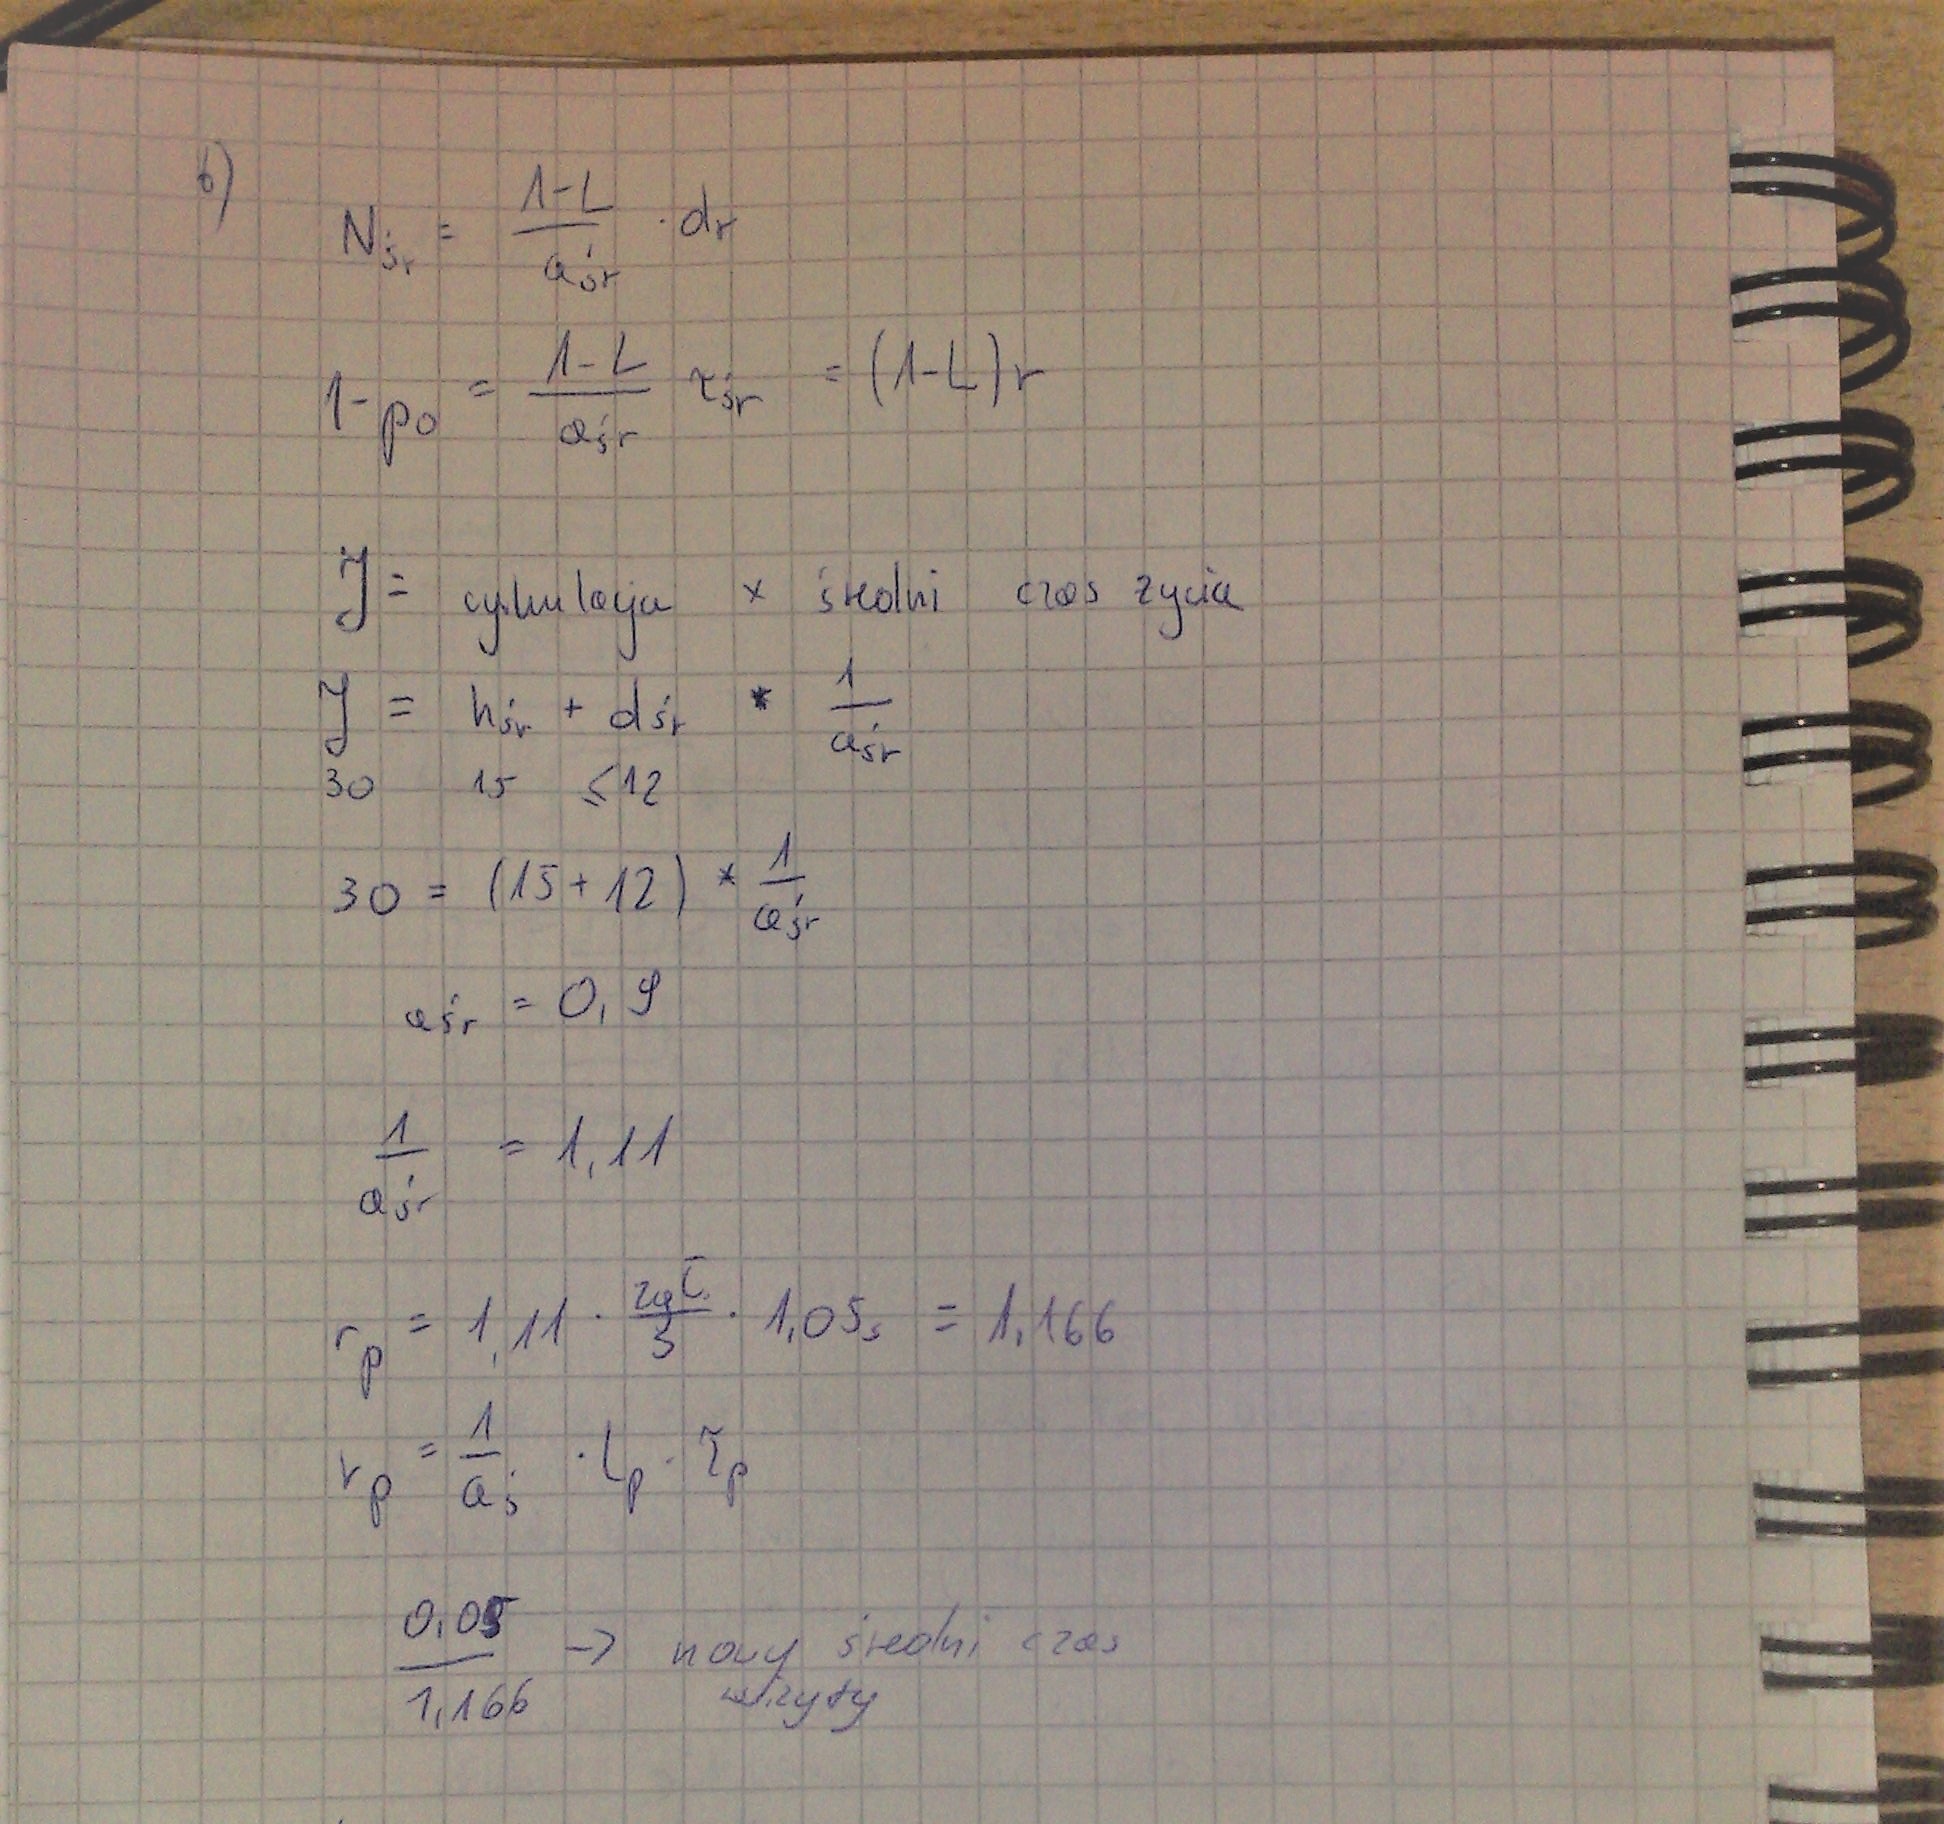 b)
Nśr = 1-L / aśr · dr
1-p0 = 1-L / aśr τśr = (1-L)r
J = cyrkulacja × średni czas życia
J = hśr + dśr * 1 / aśr
30 15 ≤12
30 = (15+12) * 1 / aśr
aśr = 0,9
1 / aśr = 1,11
rp = 1,11 · / 3 · 1,05s = 1,166
rp = 1 / aś · Lp · τp
0,05 / 1,166 → nowy średni czas
wizyty